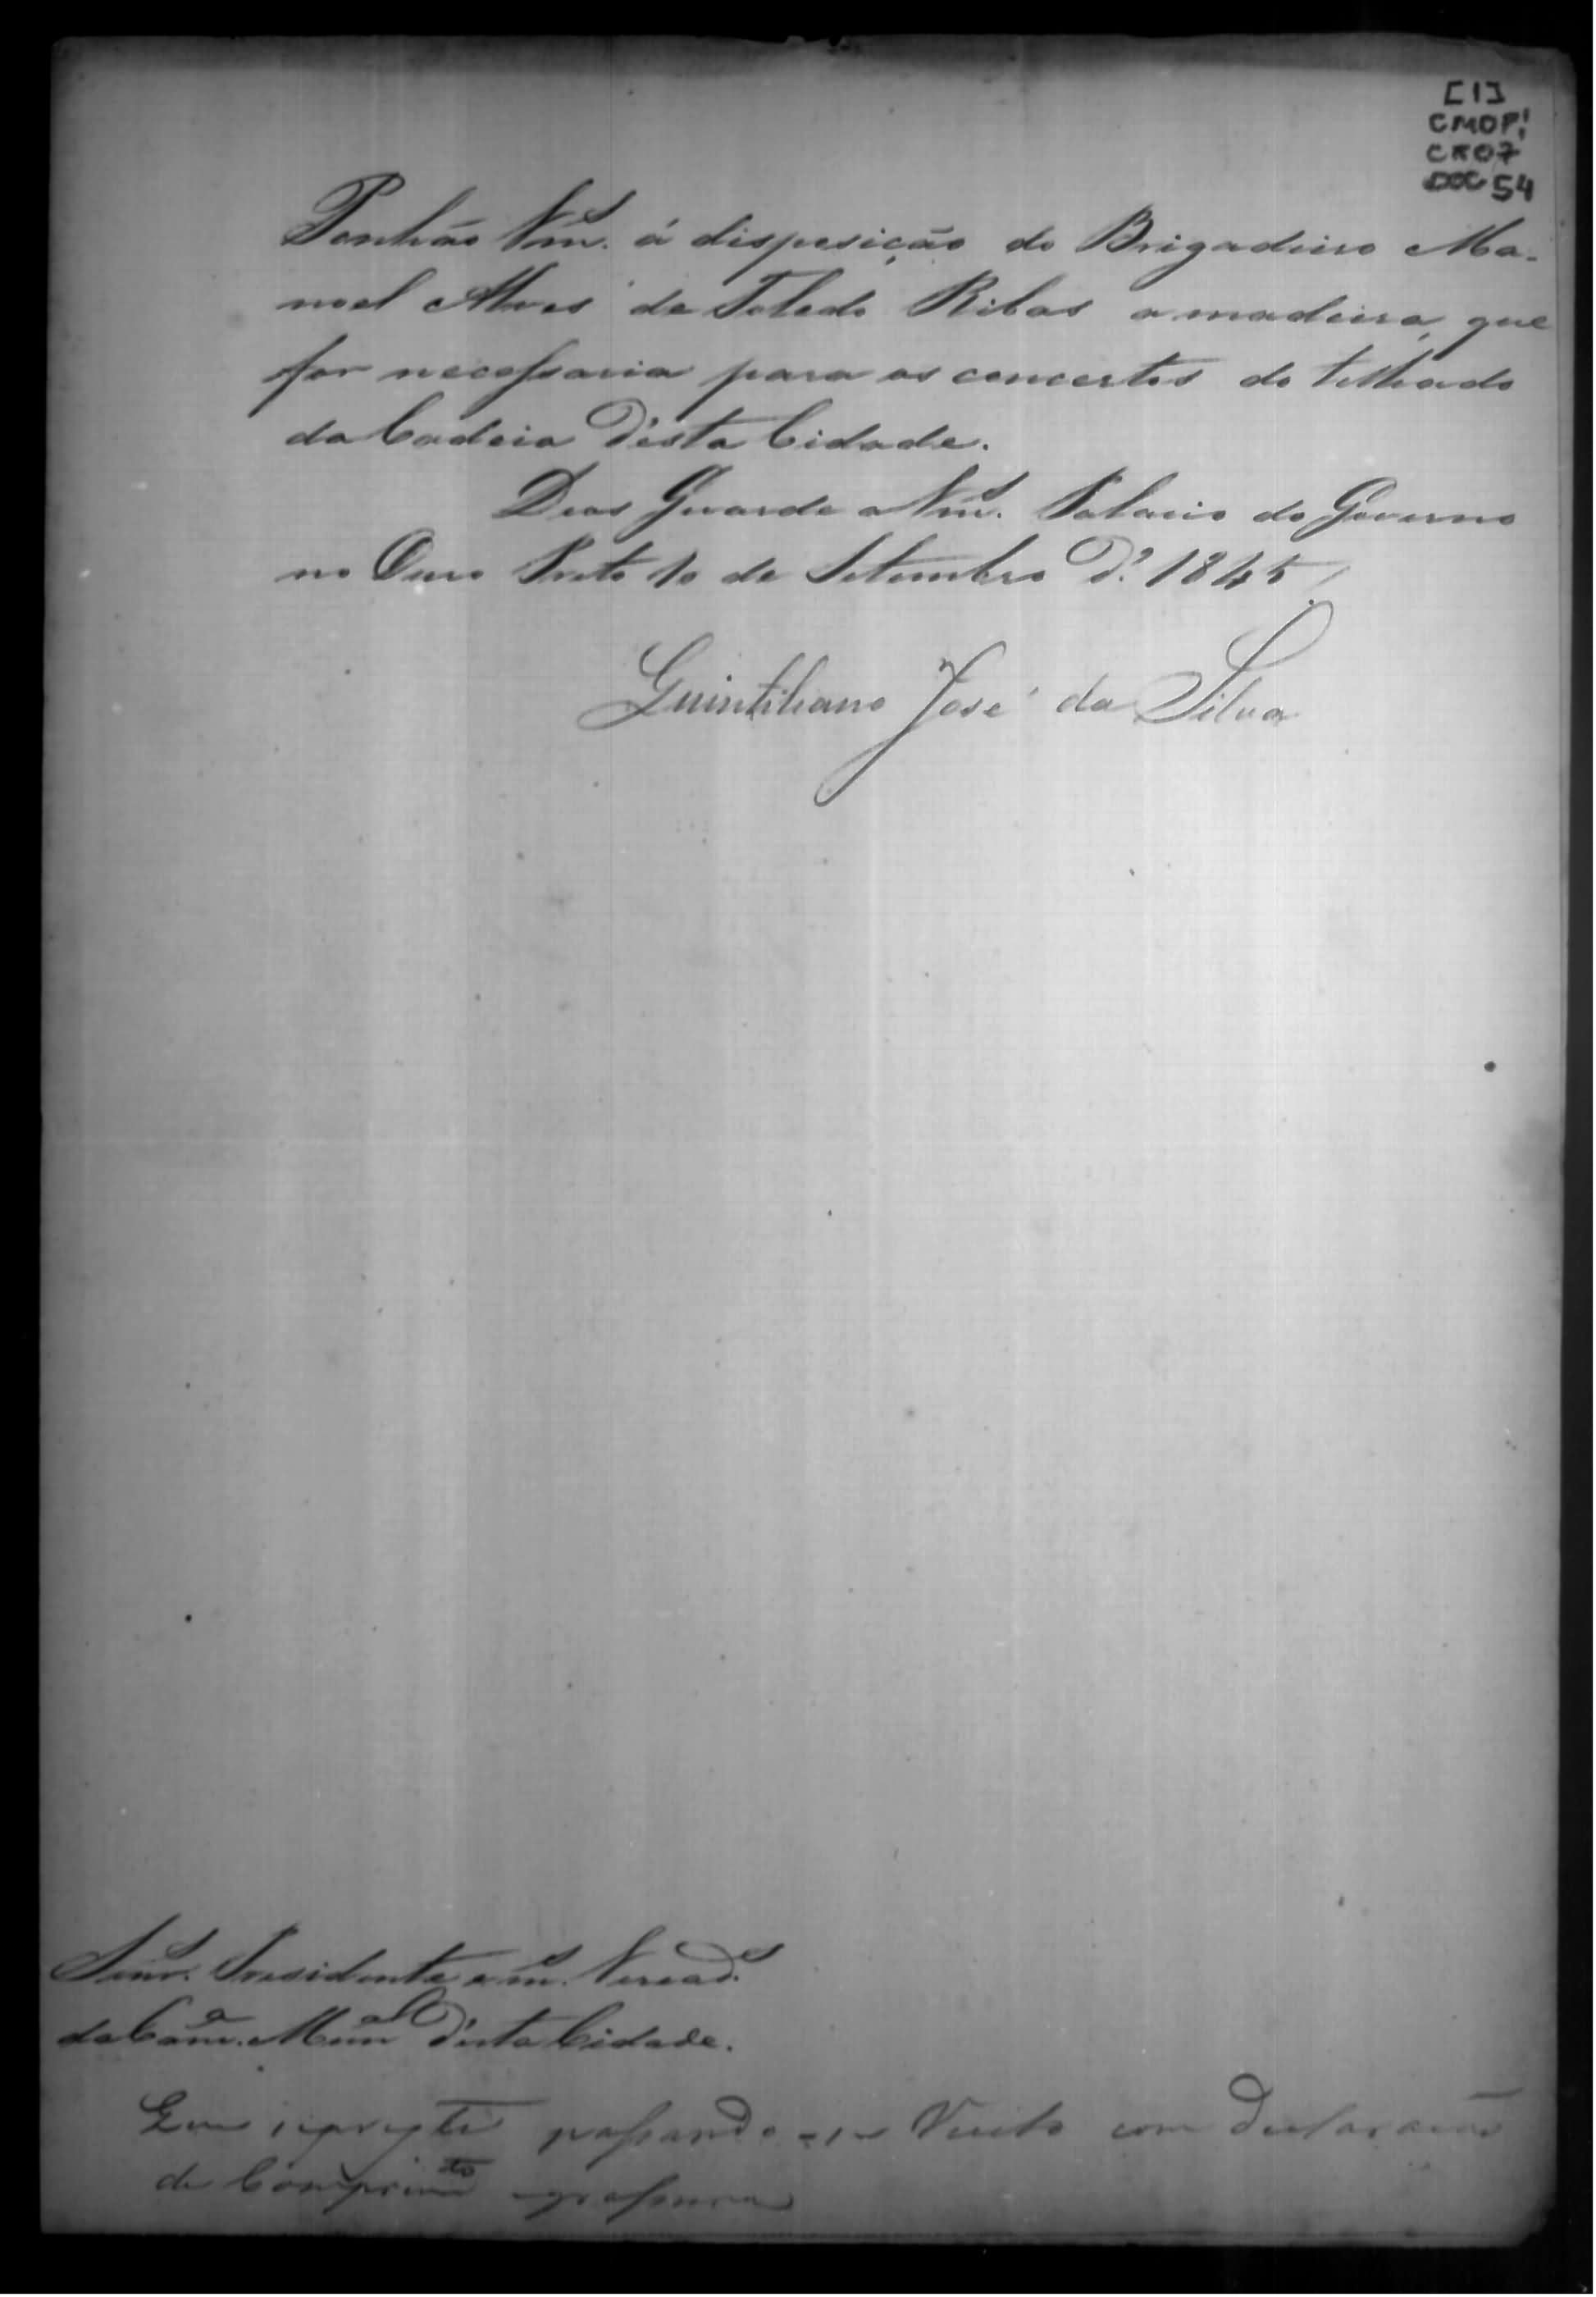 [1]
CMOP!
CX07
DOC 54
Ponhão Vm.s á disposição do Brigadeiro Ma-
noel Alves de Toledo Ribas a madeira, que
for necessaria para os concertos do telhado
da Cadeia d'esta Cidade.
Deos Guarde a Vm.s Palacio do Governo
no Ouro Preto 10 de Setembro d'1845
Quintiliano José da Silva
Senr.s Presidente e m.s Veread.es
da Cam.a Mun.al d'esta Cidade.
passando-se com declaração
de comprim.to e grossura